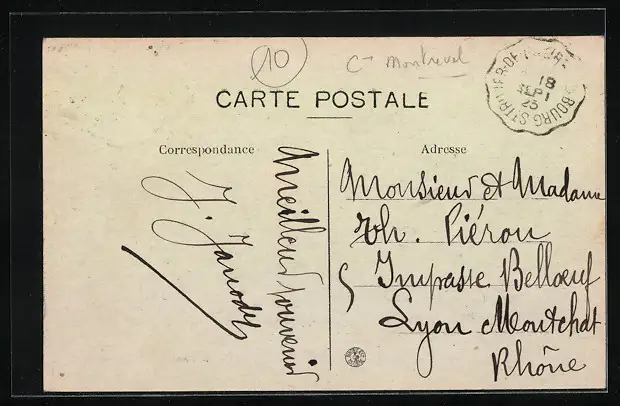 10
Cⁿ Montrevel
CARTE POSTALE
18
SEPT
23
BOURG
Correspondance
Adresse
Meilleur souvenir
J. Janody
Monsieur et Madame
Th. Piéron
5 Impasse Belloeuf
Lyon Montchat
Rhône